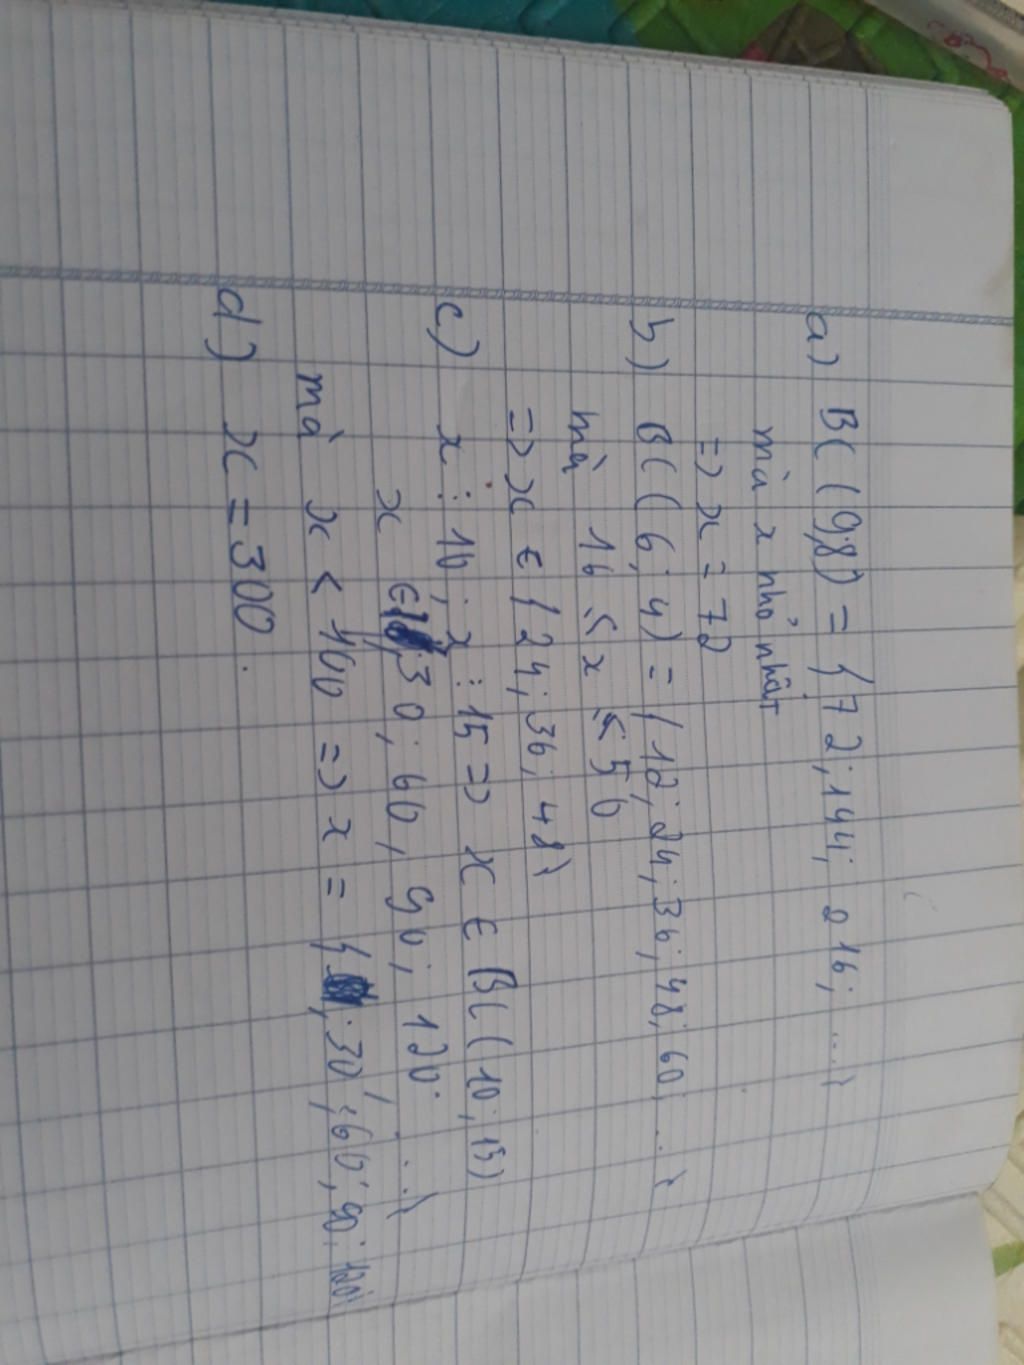 a) BC (9,8) = { 72; 144; 216; ....}
mà x nhỏ nhất
=> x = 72
b) BC (6; 4) = {12; 24; 36; 48; 60; ...}
mà 16 ≤ x ≤ 50
=> x ∈ {24; 36; 48}
c) x ⋮ 10; x ⋮ 15 => x ∈ BC (10; 15)
x ∈ { 30; 60; 90; 120; ...}
mà x < 400 => x = { 30; 60; 90; 120}
d) x = 300.